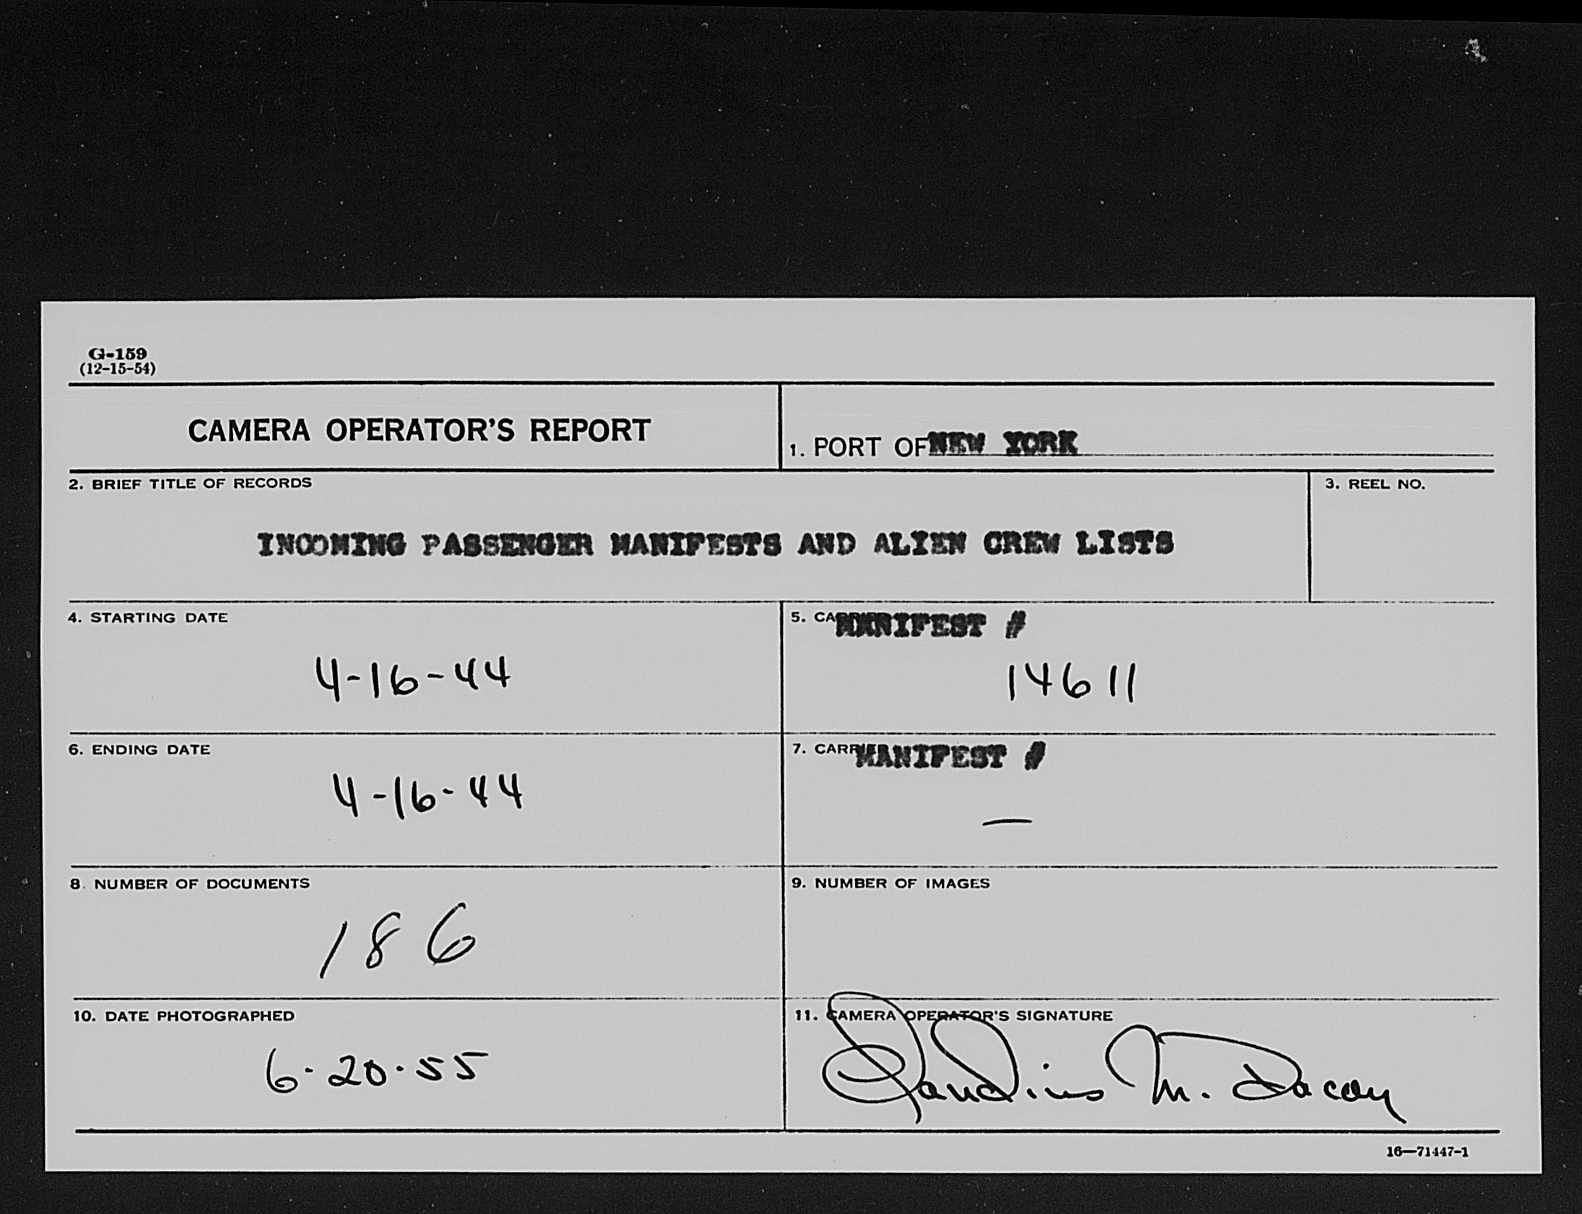 G-159
(12-15-54)
CAMERA OPERATOR'S REPORT
1. PORT OF NEW YORK
2. BRIEF TITLE OF RECORDS
3. REEL NO.
INCOMING PASSENGER MANIFESTS AND ALIEN CREW LISTS
4. STARTING DATE
4-16-44
5. MANIFEST #
14611
6. ENDING DATE
4-16-44
7. MANIFEST #
—
8. NUMBER OF DOCUMENTS
186
9. NUMBER OF IMAGES
10. DATE PHOTOGRAPHED
6-20-55
11. CAMERA OPERATOR'S SIGNATURE
Claudius M. Dacay
16—71447-1